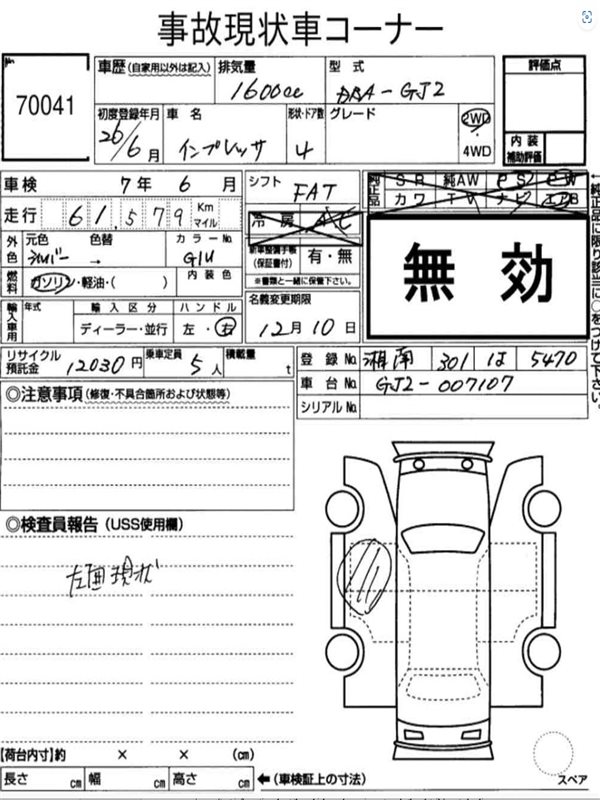 事故現状車コーナー
No.
70041
車歴 (自家用以外は記入)
排気量
1600cc
型式
DBA-GJ2
評価点
初度登録年月
26/6月
車名
インプレッサ
形状・ドア数
4
グレード
2WD
・
4WD
内装
補助評価
車検
7年 6月
シフト
FAT
純正品
SR 純AW PS PW
カワ TV ナビ エアB
走行
61,579 Km マイル
冷房 AC
外色
元色
シルバー
色替
→
カラーNo.
G1U
新車整備手帳
(保証書付)
有・無
※書類と一緒に保管下さい。
無効
燃料
ガソリン・軽油・( )
内装色
輸入車用
年式
輸入区分
ディーラー・並行
ハンドル
左・右
名義変更期限
12月10日
←純正品に限り該当に○をつけて下さい。
リサイクル
預託金
12030円
乗車定員
5人
積載量
t
登録No.
湘南 301 は 5470
車台No.
GJ2-007107
シリアルNo.
◎注意事項 (修復・不具合箇所および状態等)
◎検査員報告 (USS使用欄)
左面現状
【荷台内寸】約 × × (cm)
長さ cm 幅 cm 高さ cm ←(車検証上の寸法)
スペア